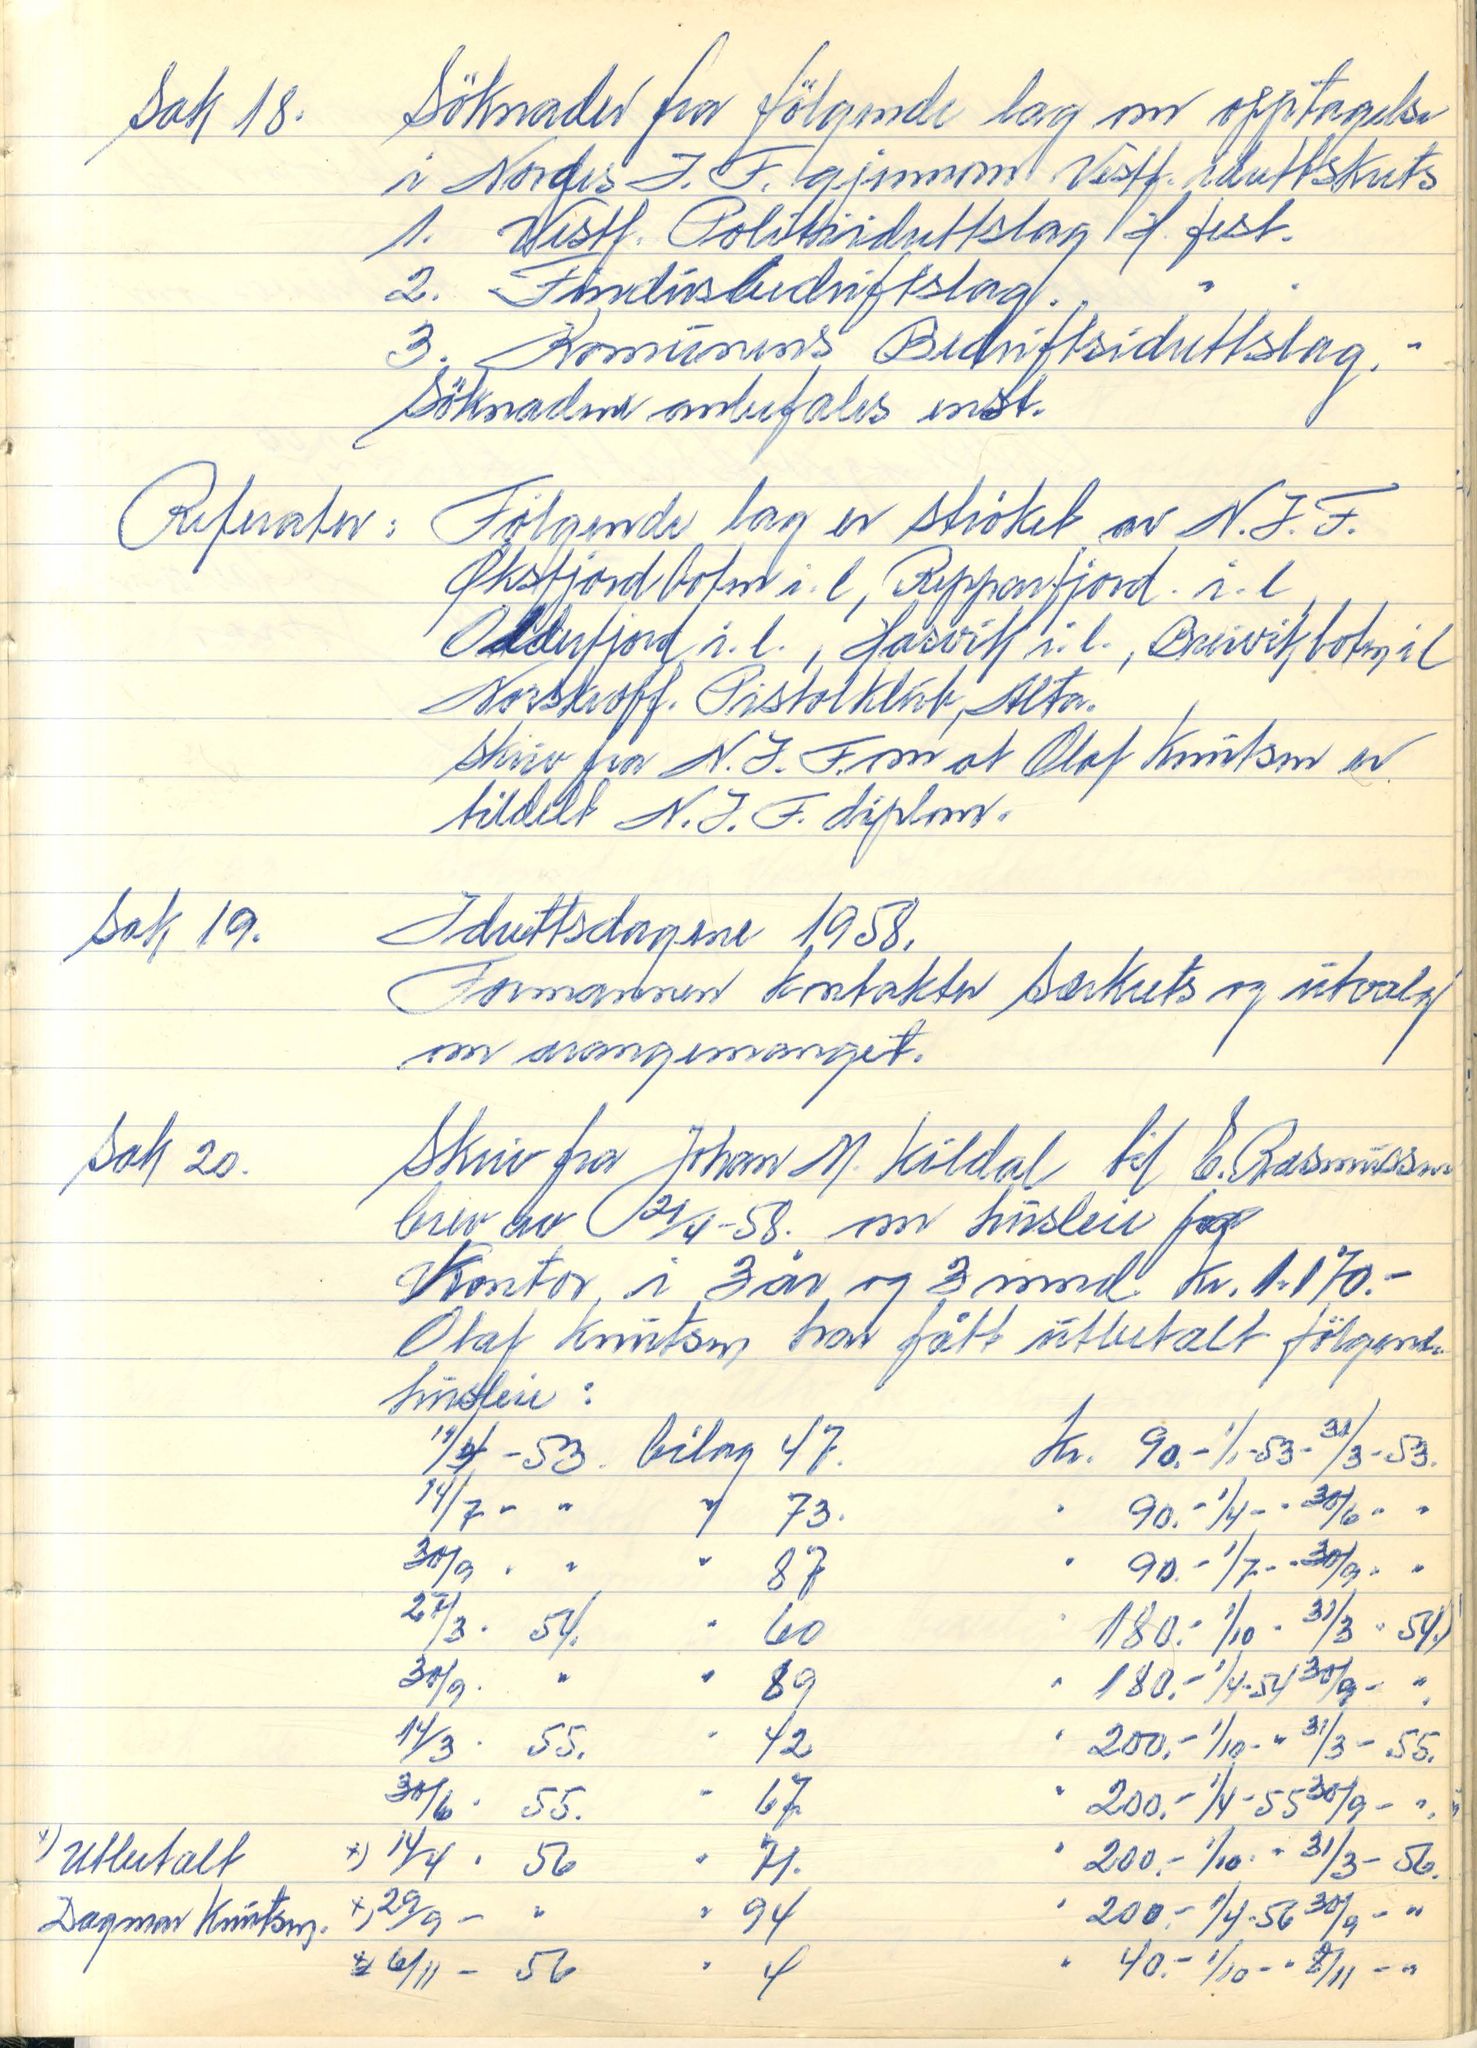 Sak 18. Söknader fra fölgende lag om opptagelse
i Norges I. F. gjennom Vestf. idrettskrets
1. Vestf. Politiidrettslag H. fest.
2. Findusbedriftslag. " "
3. Komunens Bedriftsidrettslag. "
Söknadene anbefales enst.
Referater: Følgende lag er ströket av N. I. F.
Øksfjordbotn i. l, Repparfjord. i. l
Olderfjord i. l., Hasvik i. l., Breivikbotn i l
Norskroff. Pistolklub, Alta.
Skriv fra N. I. F. om at Olaf Knutsen er
tildelt N. I. F. diplom.
Sak 19. Idrettsdagene 1958.
Formannen kontakter Særkrets og utvalg
om arangemanget.
Sak 20. Skriv fra Johan M. Kildal bif E. Rasmussen
brev av 21/4-58. om husleie for
Kontor i 3 år og 3 mnd. Kr. 1.170.-
Olaf Knutsen har fått utbetalt følgende
husleie:
11/4 - 53. bilag 47. Kr. 90.- 1/1-53- 31/3-53.
14/7 - " " 73. " 90.- 1/4 - " 30/6 - "
30/9 . " " 87 " 90.- 1/7 - " 30/9 - "
27/3 . 54. " 60 " 180.- 1/10 - 31/3 - 54.
30/9. " " 89 " 180.- 1/4-54 30/9 - ".
14/3 . 55. " 42 " 200.- 1/10 - " 31/3 - 55.
30/6 . 55. " 67 " 200.- 1/4-55 30/9 - ".
x) Utbetalt x) 14/4 . 56 " 71. " 200.- 1/10 - " 31/3 - 56.
Dagmar Knutsen. x) 29/9 - " " 94 " 200.- 1/4-56 30/9 - "
x 6/11 - 56 " 4 " 40.- 1/10 - " 8/11 - "